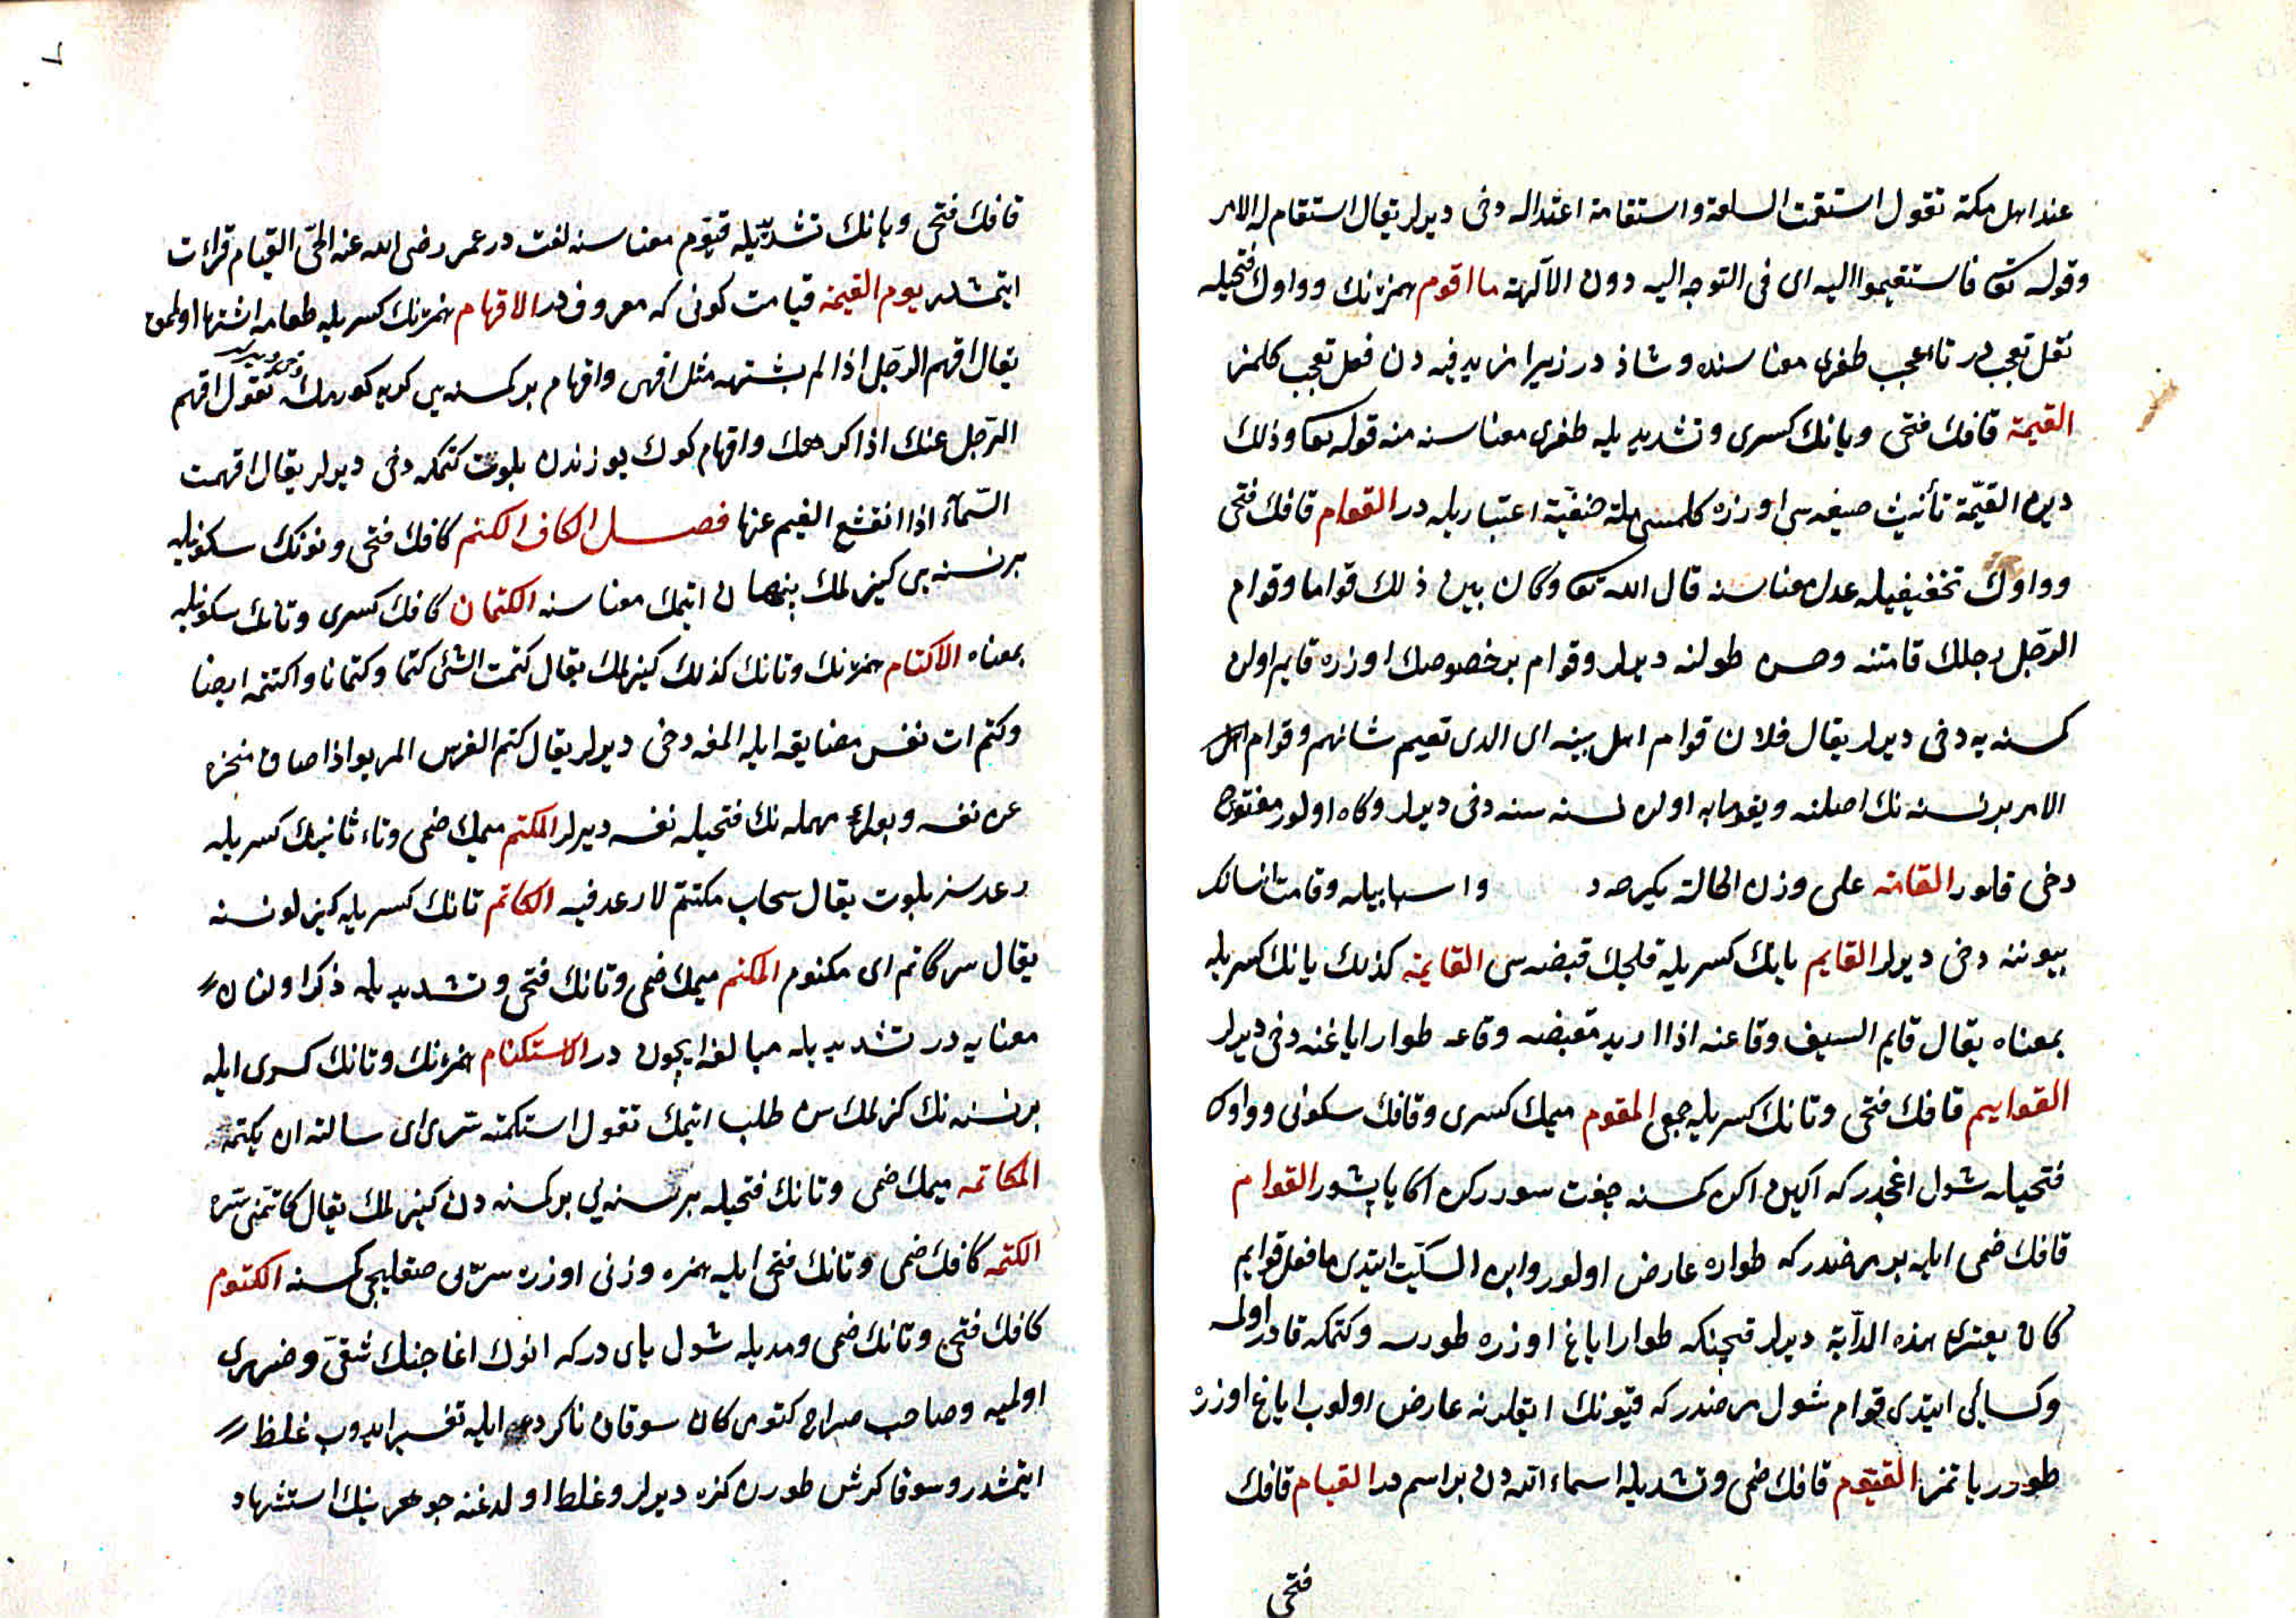 عند اهل مكة تقول استقمت السلعة واستقامة اعتداله دخى ديرلر يقال استقام له الامر
وقوله تعا فاستقيموا اليه اى فى التوجه اليه دون الآلهة ما اقوم همزه نك وواوك فتحيله
فعل تعجبدر تا اعجب طغرى معناسنده وشاذ در زيرا مزيد فيه دن فعل تعجب كلمز
القيمة قافك فتحى ويانك كسرى وتشديديله طغرى معناسنه منه قوله تعا وذلك
دين القيّمة تأنيث صيغه سى اوزره كلمسى ملة حنفيّة اعتباريله در القوام قافك فتحى
وواوك تخفيفيله عدل معناسنه قال الله تعا وكان بين ذلك قواما وقوام
الرّجل رجلك قامتنه وحسن طولنه ديرلر وقوام بر خصوصك اوزره قايم اولن
كمسنه يه دخى ديرلر يقال فلان قوام اهل بيته اى الدى تقيم شانهم وقوام اهل
الامر بر نسنه نك اصلنه ويقومابه اولان نسنه سنه دخى ديرلر وكاه اولور مفتوح
دخى قلنور القامة على وزن الحالة بكره در واسبابيله وقامت انسانك
بيوننه دخى ديرلر القايم يانك كسريله قلجك قبضه سى القايمة كذلك يانك كسريله
بمعناه يقال قايم السيف وقائمته اذا اريد مقبضه وقائمه طوار اياغنه دخى ديرلر
القوايم قافك فتحى وتانك كسريله جمعى المقوم ميمك كسرى وقافك سكونى وواوك
فتحيله شول اغجدر كه اكين اكن كمسنه جفت سوردكده اكا ياپشور القوام
قافك ضمى ايله بر مرضدر كه طواره عارض اولور وابن السكّيت ايتدى ما فعل قوايم
كان يعترى هذه الدآبة ديرلر قچنكه طوار اياغ اوزره طورسه وكتمكه قادر اولمسه
وكسائى ايتدى قوام شول مرضدر كه قيونك ايقلرنه عارض اولوب اياغ اوزره
طورر ياتمز القيّوم قافك ضمى وتشديديله اسماء الله دن بر اسمدر القيام قافك
فتحى
٧
قافك فتحى ويانك تشديديله قيّوم معناسنه لغت در عمر رضى الله عنه الحىّ القيام قرائت
ايتمشدر يوم القيمة قيامت كونى كه معروفدر الاقهام همزه نك كسريله طعامه اشتها اولمق
يقال اقهم الرجل اذا لم يشتهه مثل اقهى واقهام بر كمسنه يى كريه كورمك تقول اقهم
الرّجل عنك اذا كرهك واقهام كوك يوزندن بلوت كتمكه دخى ديرلر يقال اقهمت
السّمآء اذا انقشع الغيم عنها فصـل الكاف الكتم كافك فتحى ونونك سكونيله
بر نسنه يى كيزلمك پنهان اتمك معناسنه الكتمان كافك كسرى وتانك سكونيله
بمعناه الاكتتام همزه نك وتانك كذلك كيزلمك يقال كتمت الشئ كتما وكتمانا واكتتمه ايضا
وكتم ات نفس مضايقه ايله المغه دخى ديرلر يقال كتم الفرس المربو اذا ضاق منخره
عن نفسه مهمله نك فتحيله نفسه ديرلر المكتتم ميمك ضمى وتاء ثانيه نك كسريله
رعدسز بلوت يقال سحاب مكتتم لا رعد فيه الكاتم تانك كسريله كيزلو نسنه
يقال سر كاتم اى مكتوم المكتم ميمك ضمى وتانك فتحى وتشديديله ذكر اولنان
معنايه در تشديديله مبالغه ايچون در الاستكتام همزه نك وتانك كسرى ايله
بر نسنه نك كزلمك سن طلب اتمك تقول استكتمته سرى اى سالته ان يكتمه
المكاتمة ميمك ضمى وتانك فتحيله بر نسنه يى بر كمسنه دن كيزلمك يقال كاتمنى سرّه
الكتمه كافك ضمى وتانك فتحى ايله همزه وزنى اوزره سرّى صقليجى كمسنه الكتوم
كافك فتحى وتانك ضمى ومديله شول ياى در كه انوك اغاجنك شقّى وضررى
اولميه وصاحب صراح كتومى كان سوفان ناكرده ايله تفسير ايدوب غلظ
ايتمشدر وسوفا كرش طورن كزه ديرلر وغلط اولدغنه جوهرينك استشهاد